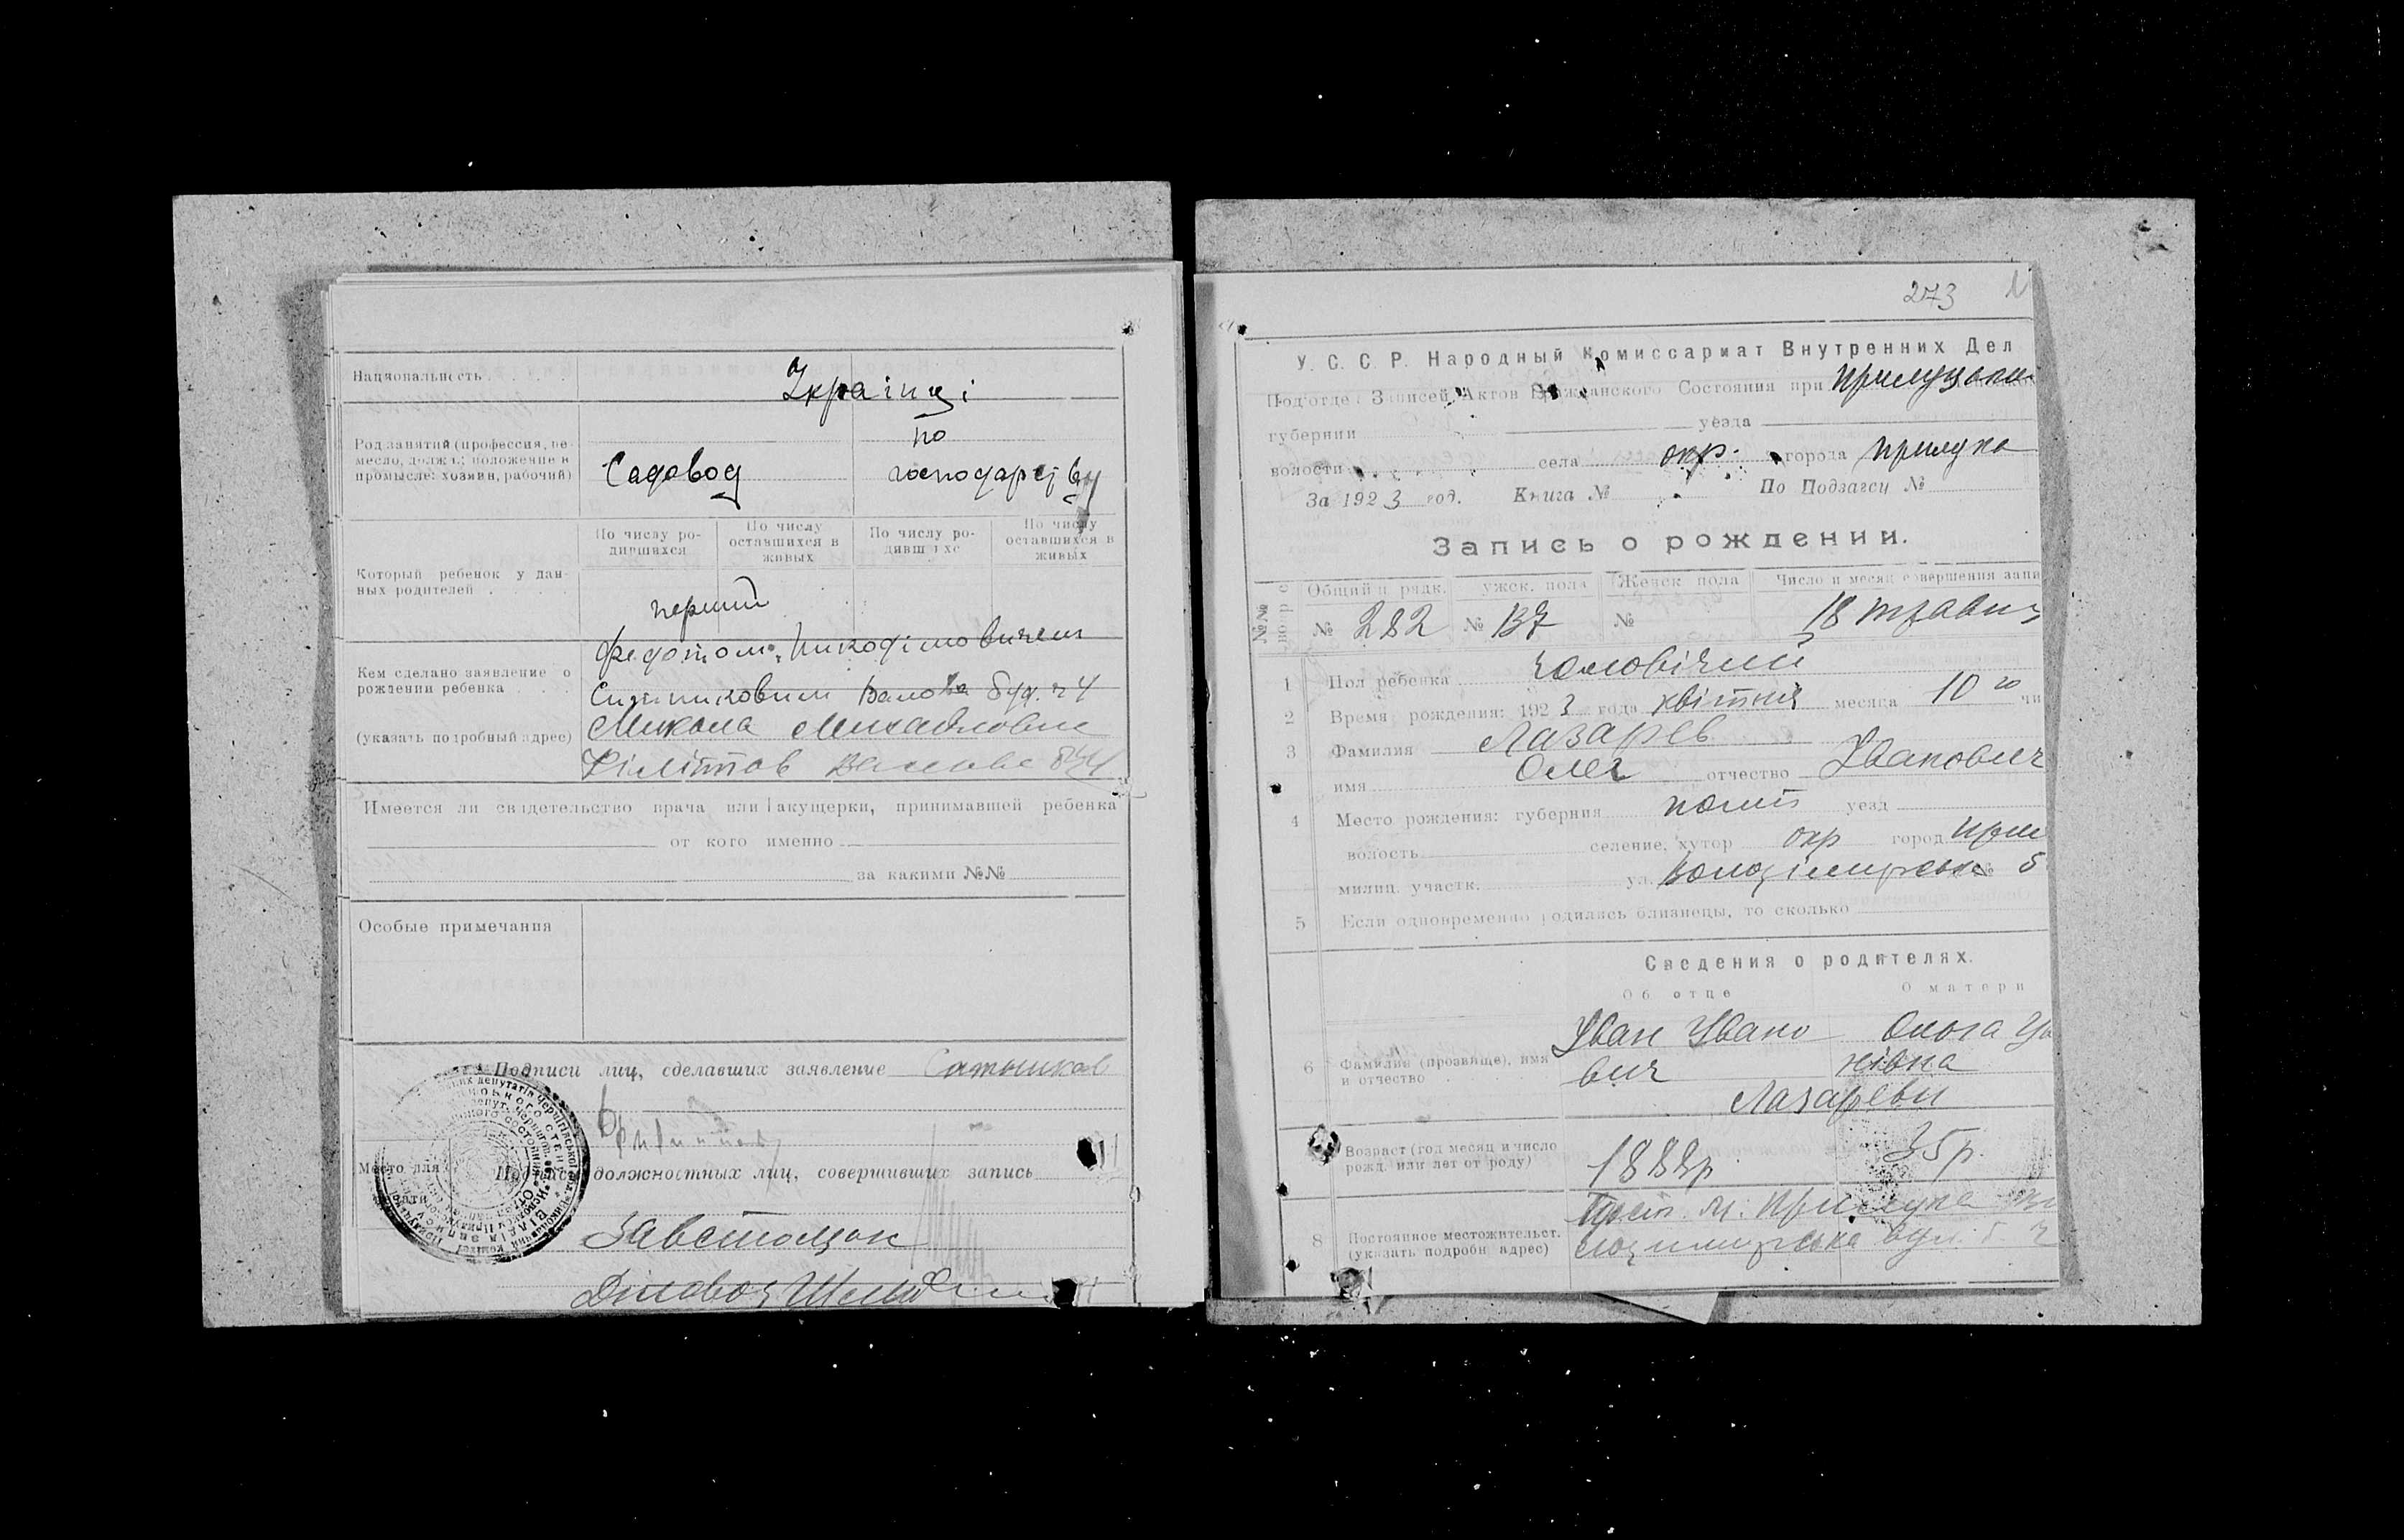 Национальность
Українці
Род занятий (профессия, ре-
месло, должн.; положение в
промысле: хозяин, рабочий)
Садовод
по
господарству
По числу ро-
дившихся
По числу
оставшихся в
живых
По числу ро-
дившихс
По числу
оставшихся в
живых
Который ребенок у дан-
ных родителей
перший
Кем сделано заявление о
рождении ребенка
(указать подробный адрес)
Федотом Никодімовичем
Ситниковим Валова буд. ч 4
Микола Михайлович
Філіппов Валова
Имеется ли свидетельство врача или акушерки, принимавшей ребенка
от кого именно
за какими №№
Особые примечания
Подписи лиц, сделавших заявление Сатников
Место для
печати
Подписи должностных лиц, совершивших запись
Завстолом
Діловод
273
У. С. С. Р. Народный Комиссариат Внутренних Дел
Подотдел Записей Актов Гражданского Состояния при Прилуцьки
губернии уезда
волости села окр. города Прилука
За 1923 год. Книга № По Подзагсу №
Запись о рождении.
№№ по пор
Общий рядк. мужск. пола Женск пола Число и месяц совершения запи
№ 282 № 137 № 18 травн
1 Пол ребенка чоловічий
2 Время рождения: 1923 года квітня месяца 10 го чи
3 Фамилия Лазарев
имя Олег отчество Іванович
4 Место рождения: губерния полт уезд
волость селение, хутор окр город При
милиц. участк. ул. Володимирська № б
5 Если одновременно родились близнецы, то сколько
Сведения о родителях.
Об отце О матери
6 Фамилия (прозвище), имя
и отчество
Іван Івано Ольга Ів
вич нівна
Лазареви
Возраст (год месяц и число
рожд. или лет от роду)
1888р 35р.
8 Постоянное местожительст.
(указать подробн адрес)
м. Прилука Во
лодимирська вул. б. ч